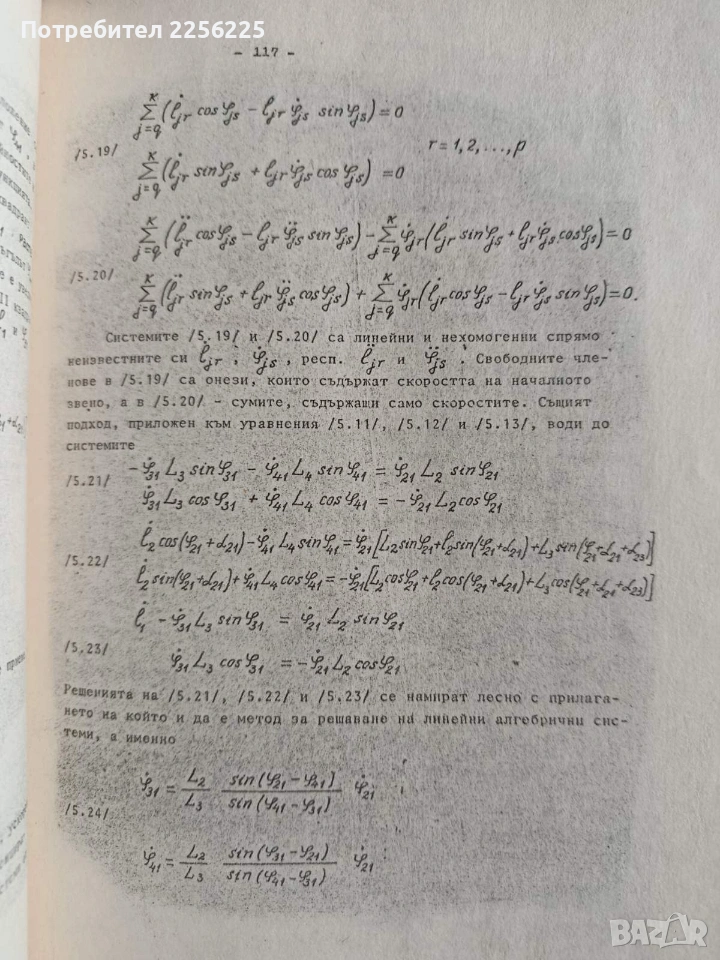 Потребител 2256225
- 117 -
∑_{j=q}^{K} (l̇_{jr} cos φ_{js} − l_{jr} φ̇_{js} sin φ_{js}) = 0
/5.19/ r = 1, 2, ..., p
∑_{j=q}^{K} (l̇_{jr} sin φ_{js} + l_{jr} φ̇_{js} cos φ_{js}) = 0
∑_{j=q}^{K} (l̈_{jr} cos φ_{js} − l_{jr} φ̈_{js} sin φ_{js}) − ∑_{j=q}^{K} φ̇_{jr} (l̇_{jr} sin φ_{js} + l_{jr} φ̇_{js} cos φ_{js}) = 0
/5.20/
∑_{j=q}^{K} (l̈_{jr} sin φ_{js} + l_{jr} φ̈_{js} cos φ_{js}) + ∑_{j=q}^{K} φ̇_{jr} (l̇_{jr} cos φ_{js} − l_{jr} φ̇_{js} sin φ_{js}) = 0.
Системите /5.19/ и /5.20/ са линейни и нехомогенни спрямо
неизвестните си l̇_{jr}, φ̇_{js}, респ. l̈_{jr} и φ̈_{js}. Свободните чле-
нове в /5.19/ са онези, които съдържат скоростта на началното
звено, а в /5.20/ - сумите, съдържащи само скоростите. Същият
подход, приложен към уравнения /5.11/, /5.12/ и /5.13/, води до
системите
/5.21/ −φ̇_{31} L_3 sin φ_{31} − φ̇_{41} L_4 sin φ_{41} = φ̇_{21} L_2 sin φ_{21}
φ̇_{31} L_3 cos φ_{31} + φ̇_{41} L_4 cos φ_{41} = −φ̇_{21} L_2 cos φ_{21}
l̇_2 cos(φ_{21}+α_{21}) − φ̇_{41} L_4 sin φ_{41} = φ̇_{21} [L_2 sin φ_{21} + l_2 sin(φ_{21}+α_{21}) + L_3 sin(φ_{21}+α_{21}+α_{23})]
/5.22/
l̇_2 sin(φ_{21}+α_{21}) + φ̇_{41} L_4 cos φ_{41} = −φ̇_{21} [L_2 cos φ_{21} + l_2 cos(φ_{21}+α_{21}) + L_3 cos(φ_{21}+α_{21}+α_{23})]
l̇_1 − φ̇_{31} L_3 sin φ_{31} = φ̇_{21} L_2 sin φ_{21}
/5.23/
φ̇_{31} L_3 cos φ_{31} = −φ̇_{21} L_2 cos φ_{21}
Решенията на /5.21/, /5.22/ и /5.23/ се намират лесно с прилага-
нето на който и да е метод за решаване на линейни алгебрични сис-
теми, а именно
φ̇_{31} = L_2/L_3 sin(φ_{21} − φ_{41})/sin(φ_{41} − φ_{31}) φ̇_{21}
/5.24/
φ̇_{41} = L_2/L_3 sin(φ_{31} − φ_{21})/sin(φ_{41} − φ_{31}) φ̇_{21}
BAZAR